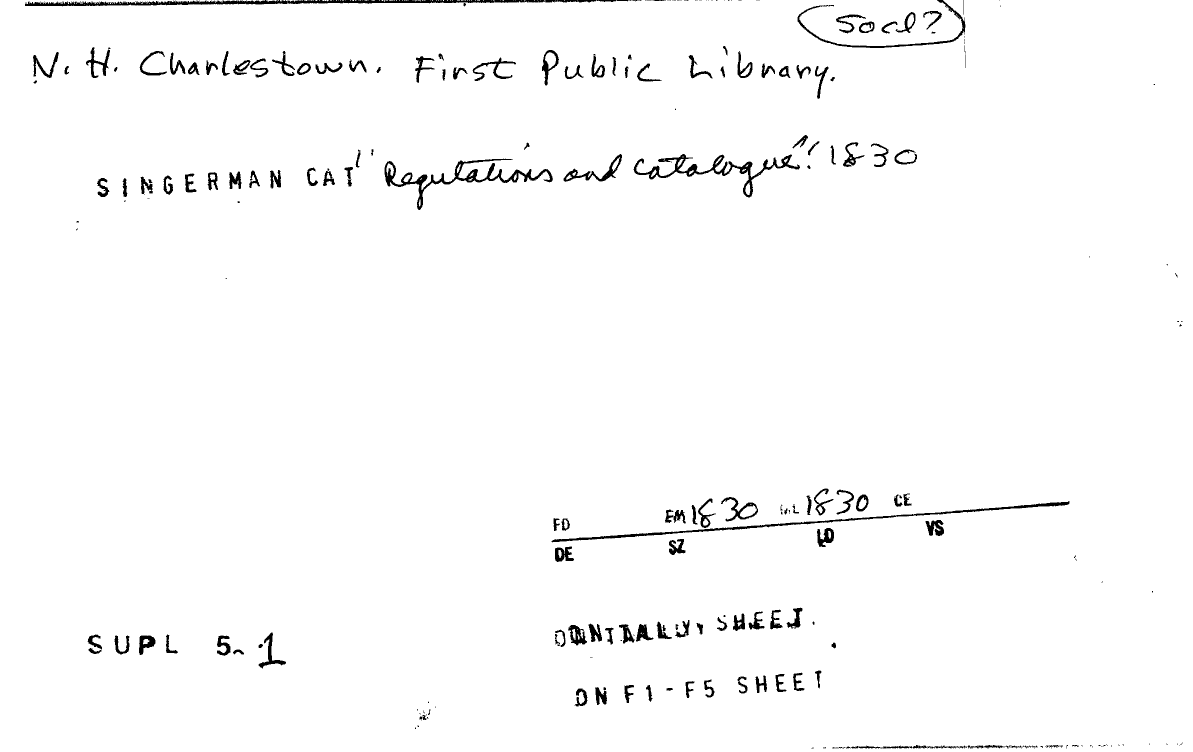 Socl?
N. H. Charlestown. First Public Library.
SINGERMAN CAT "Regulations and catalogue"! 1830
FD EM 1830 CE
1830
DE SZ LD VS
SUPL 5. 1
SHEET.
ON F1-F5 SHEET